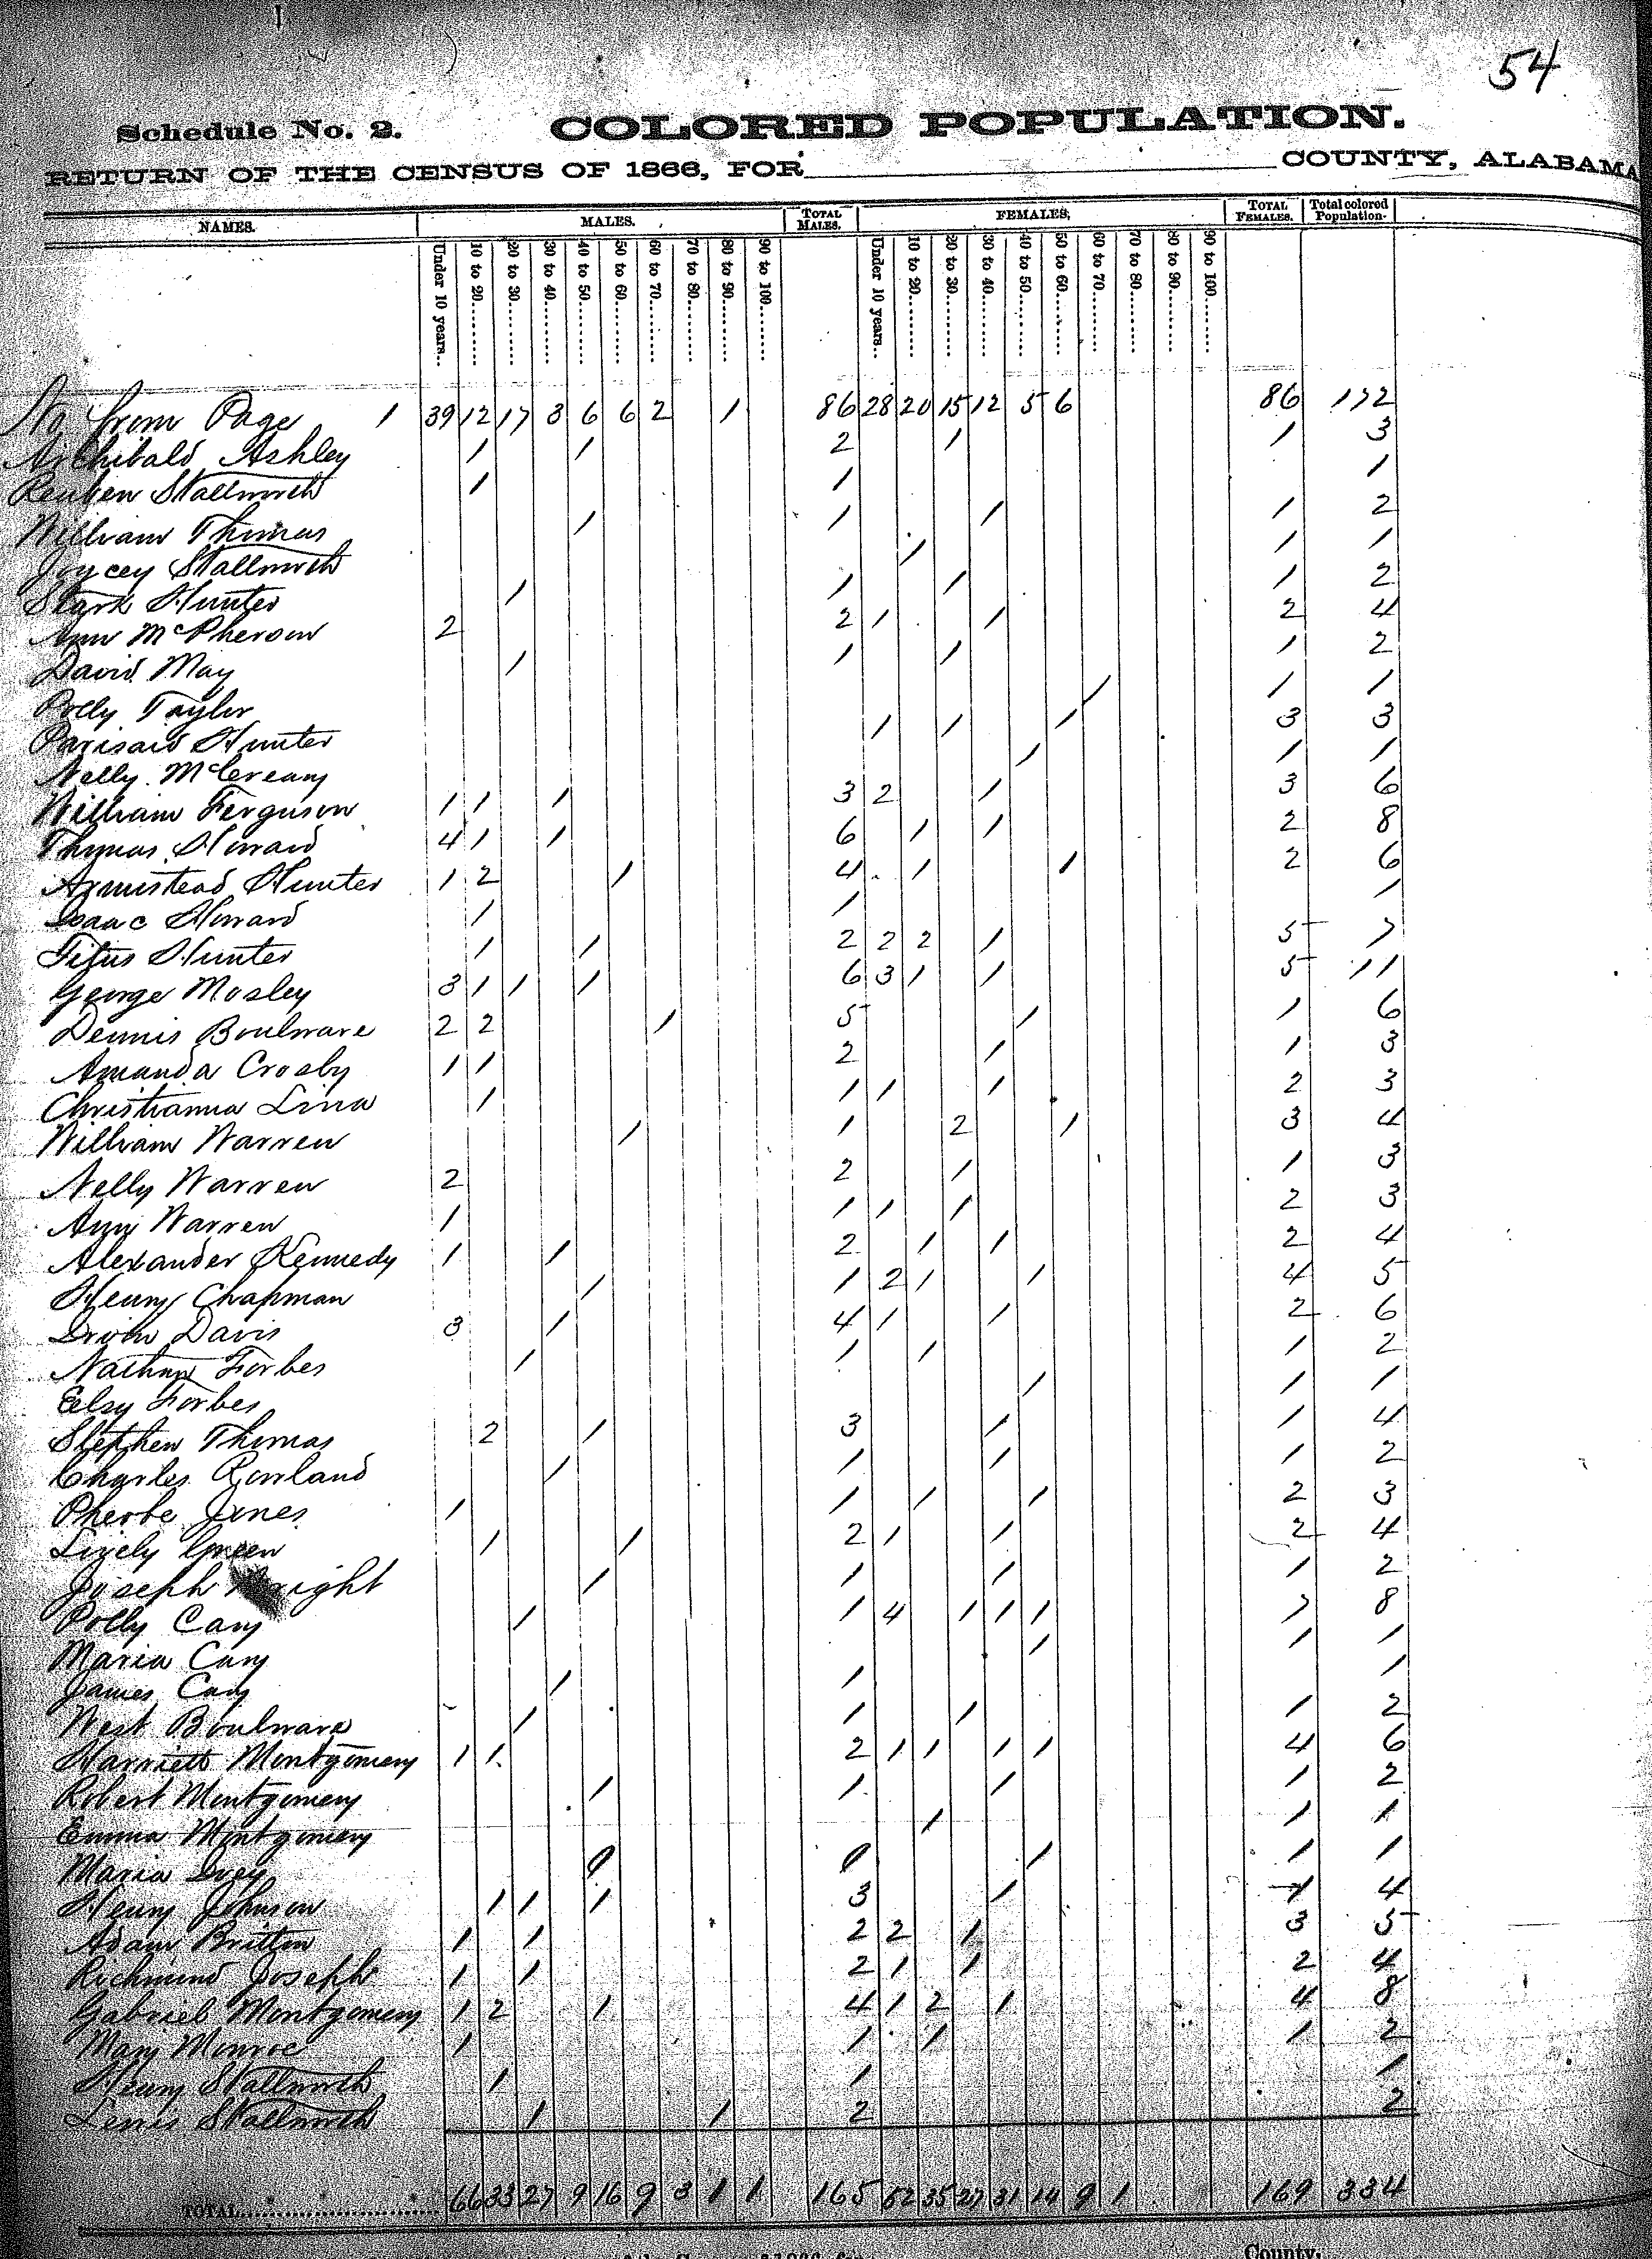 54
Schedule No. 2. COLORED POPULATION.
RETURN OF THE CENSUS OF 1866, FOR COUNTY, ALABAMA
NAMES. MALES. TOTAL MALES. FEMALES, TOTAL FEMALES. Total colored Population.
Under 10 years.. 10 to 20........ 20 to 30........ 30 to 40........ 40 to 50........ 50 to 60........ 60 to 70........ 70 to 80........ 80 to 90........ 90 to 100........ Under 10 years.. 10 to 20........ 20 to 30........ 30 to 40........ 40 to 50........ 50 to 60........ 60 to 70........ 70 to 80........ 80 to 90........ 90 to 100........
No from Page 1 39 12 17 3 6 6 2 1 86 28 20 15 12 5 6 86 172
Archibald Ashley 1 1 2 1 1 3
Reuben Stallworth 1 1 1
William Thomas 1 1 1 1 2
Joycey Stallworth 1 1 1
Stark Hunter 1 1 1 1 2
Ann McPherson 2 2 1 1 2 4
David May 1 1 1 1 2
Polly Taylor 1 1 1
Hunter 1 1 1 3 3
Nelly McCreary 1 1 1
William Ferguson 1 1 1 3 2 1 3 6
Thomas Howard 4 1 1 6 1 1 2 8
Armistead Hunter 1 2 1 4 1 1 2 6
Isaac Howard 1 1 1
Titus Hunter 1 1 2 2 2 1 5 7
George Mosley 3 1 1 1 6 3 1 1 5 11
Dennis Boulware 2 2 1 5 1 1 6
Amanda Crosby 1 1 2 1 1 3
Christianna Lina 1 1 1 1 2 3
William Warren 1 1 2 1 3 4
Nelly Warren 2 2 1 1 3
Ann Warren 1 1 1 1 2 3
Alexander Kennedy 1 1 2 1 1 2 4
Henry Chapman 1 1 2 1 1 4 5
Irvin Davis 3 1 4 1 1 2 6
Nathan Forbes 1 1 1 1 2
Elsy Forbes 1 1 1
Stephen Thomas 2 1 3 1 1 4
Charles Rowland 1 1 1 1 2
Pheobe Jones 1 1 1 1 2 3
Lively Green 1 1 2 1 1 2 4
Joseph Wright 1 1 1 1 2
Polly Cary 1 1 4 1 1 1 7 8
Maria Cary 1 1 1
James Cary 1 1 1
West Boulware 1 1 1 1 2
Harriett Montgomery 1 1 2 1 1 1 1 4 6
Robert Montgomery 1 1 1 1 2
Emma Montgomery 1 1 1
Maria Ivey 1 1 1
Henry Johnson 1 1 1 3 1 1 4
Adam Britton 1 1 2 2 1 3 5
Richmond Joseph 1 1 2 1 1 2 4
Gabriel Montgomery 1 2 1 4 1 2 1 4 8
Mary Monroe 1 1 1 1 2
Henry Stallworth 1 1 1
Lewis Stallworth 1 1 2 2
TOTAL 66 33 27 9 16 9 3 1 1 165 52 35 27 31 14 9 1 169 334
County.